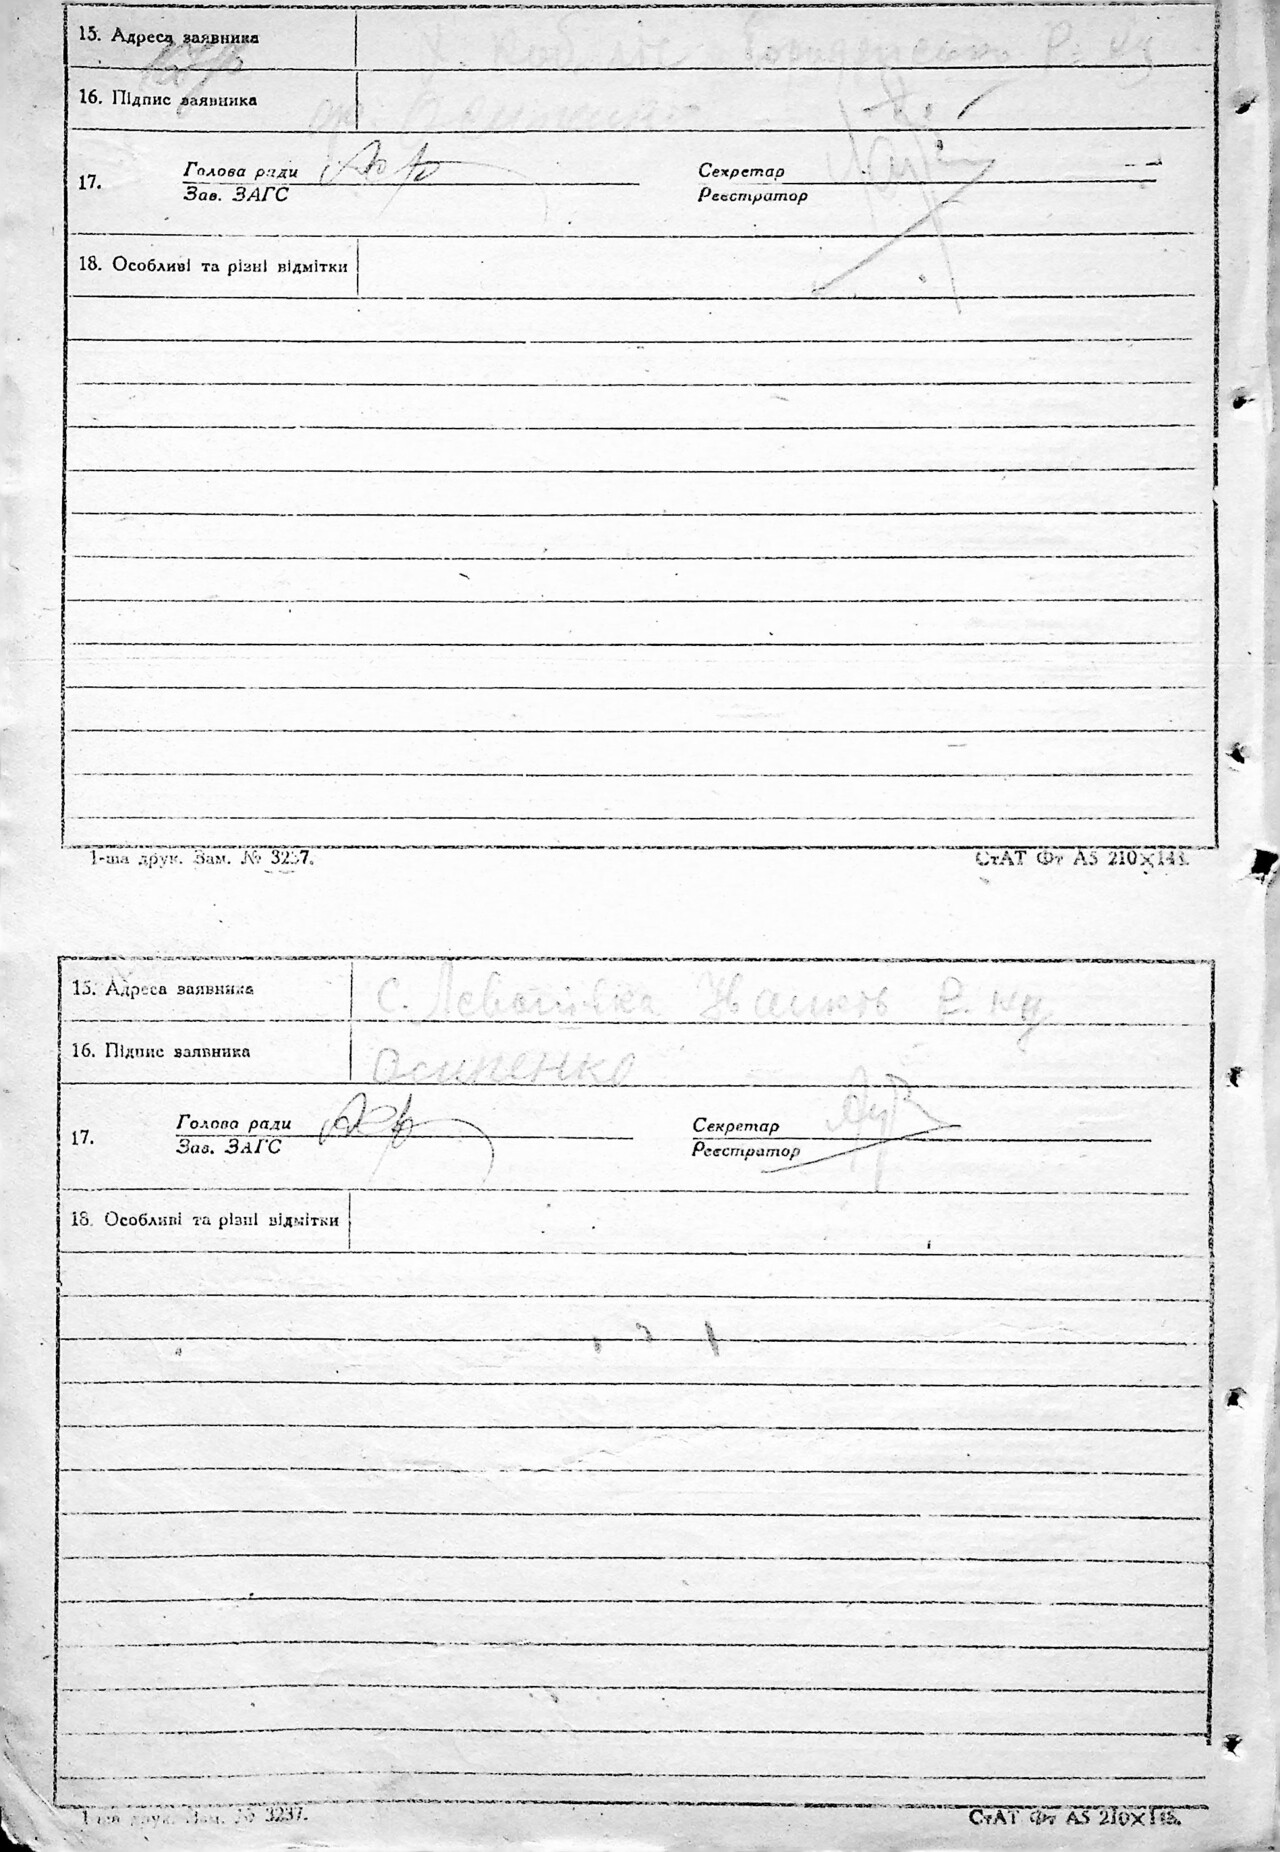 15. Адреса заявника
16. Підпис заявника
17. Голова ради Секретар
Зав. ЗАГС Реєстратор
18. Особливі та різні відмітки
1-ша друк. Зам. № 3237. СтАТ Фт А5 210×148.
15. Адреса заявника С. Р. Ку
16. Підпис заявника Осипенко
17. Голова ради Секретар
Зав. ЗАГС Реєстратор
18. Особливі та різні відмітки
1-ша друк. Зам. № 3237. СтАТ Фт А5 210×148.